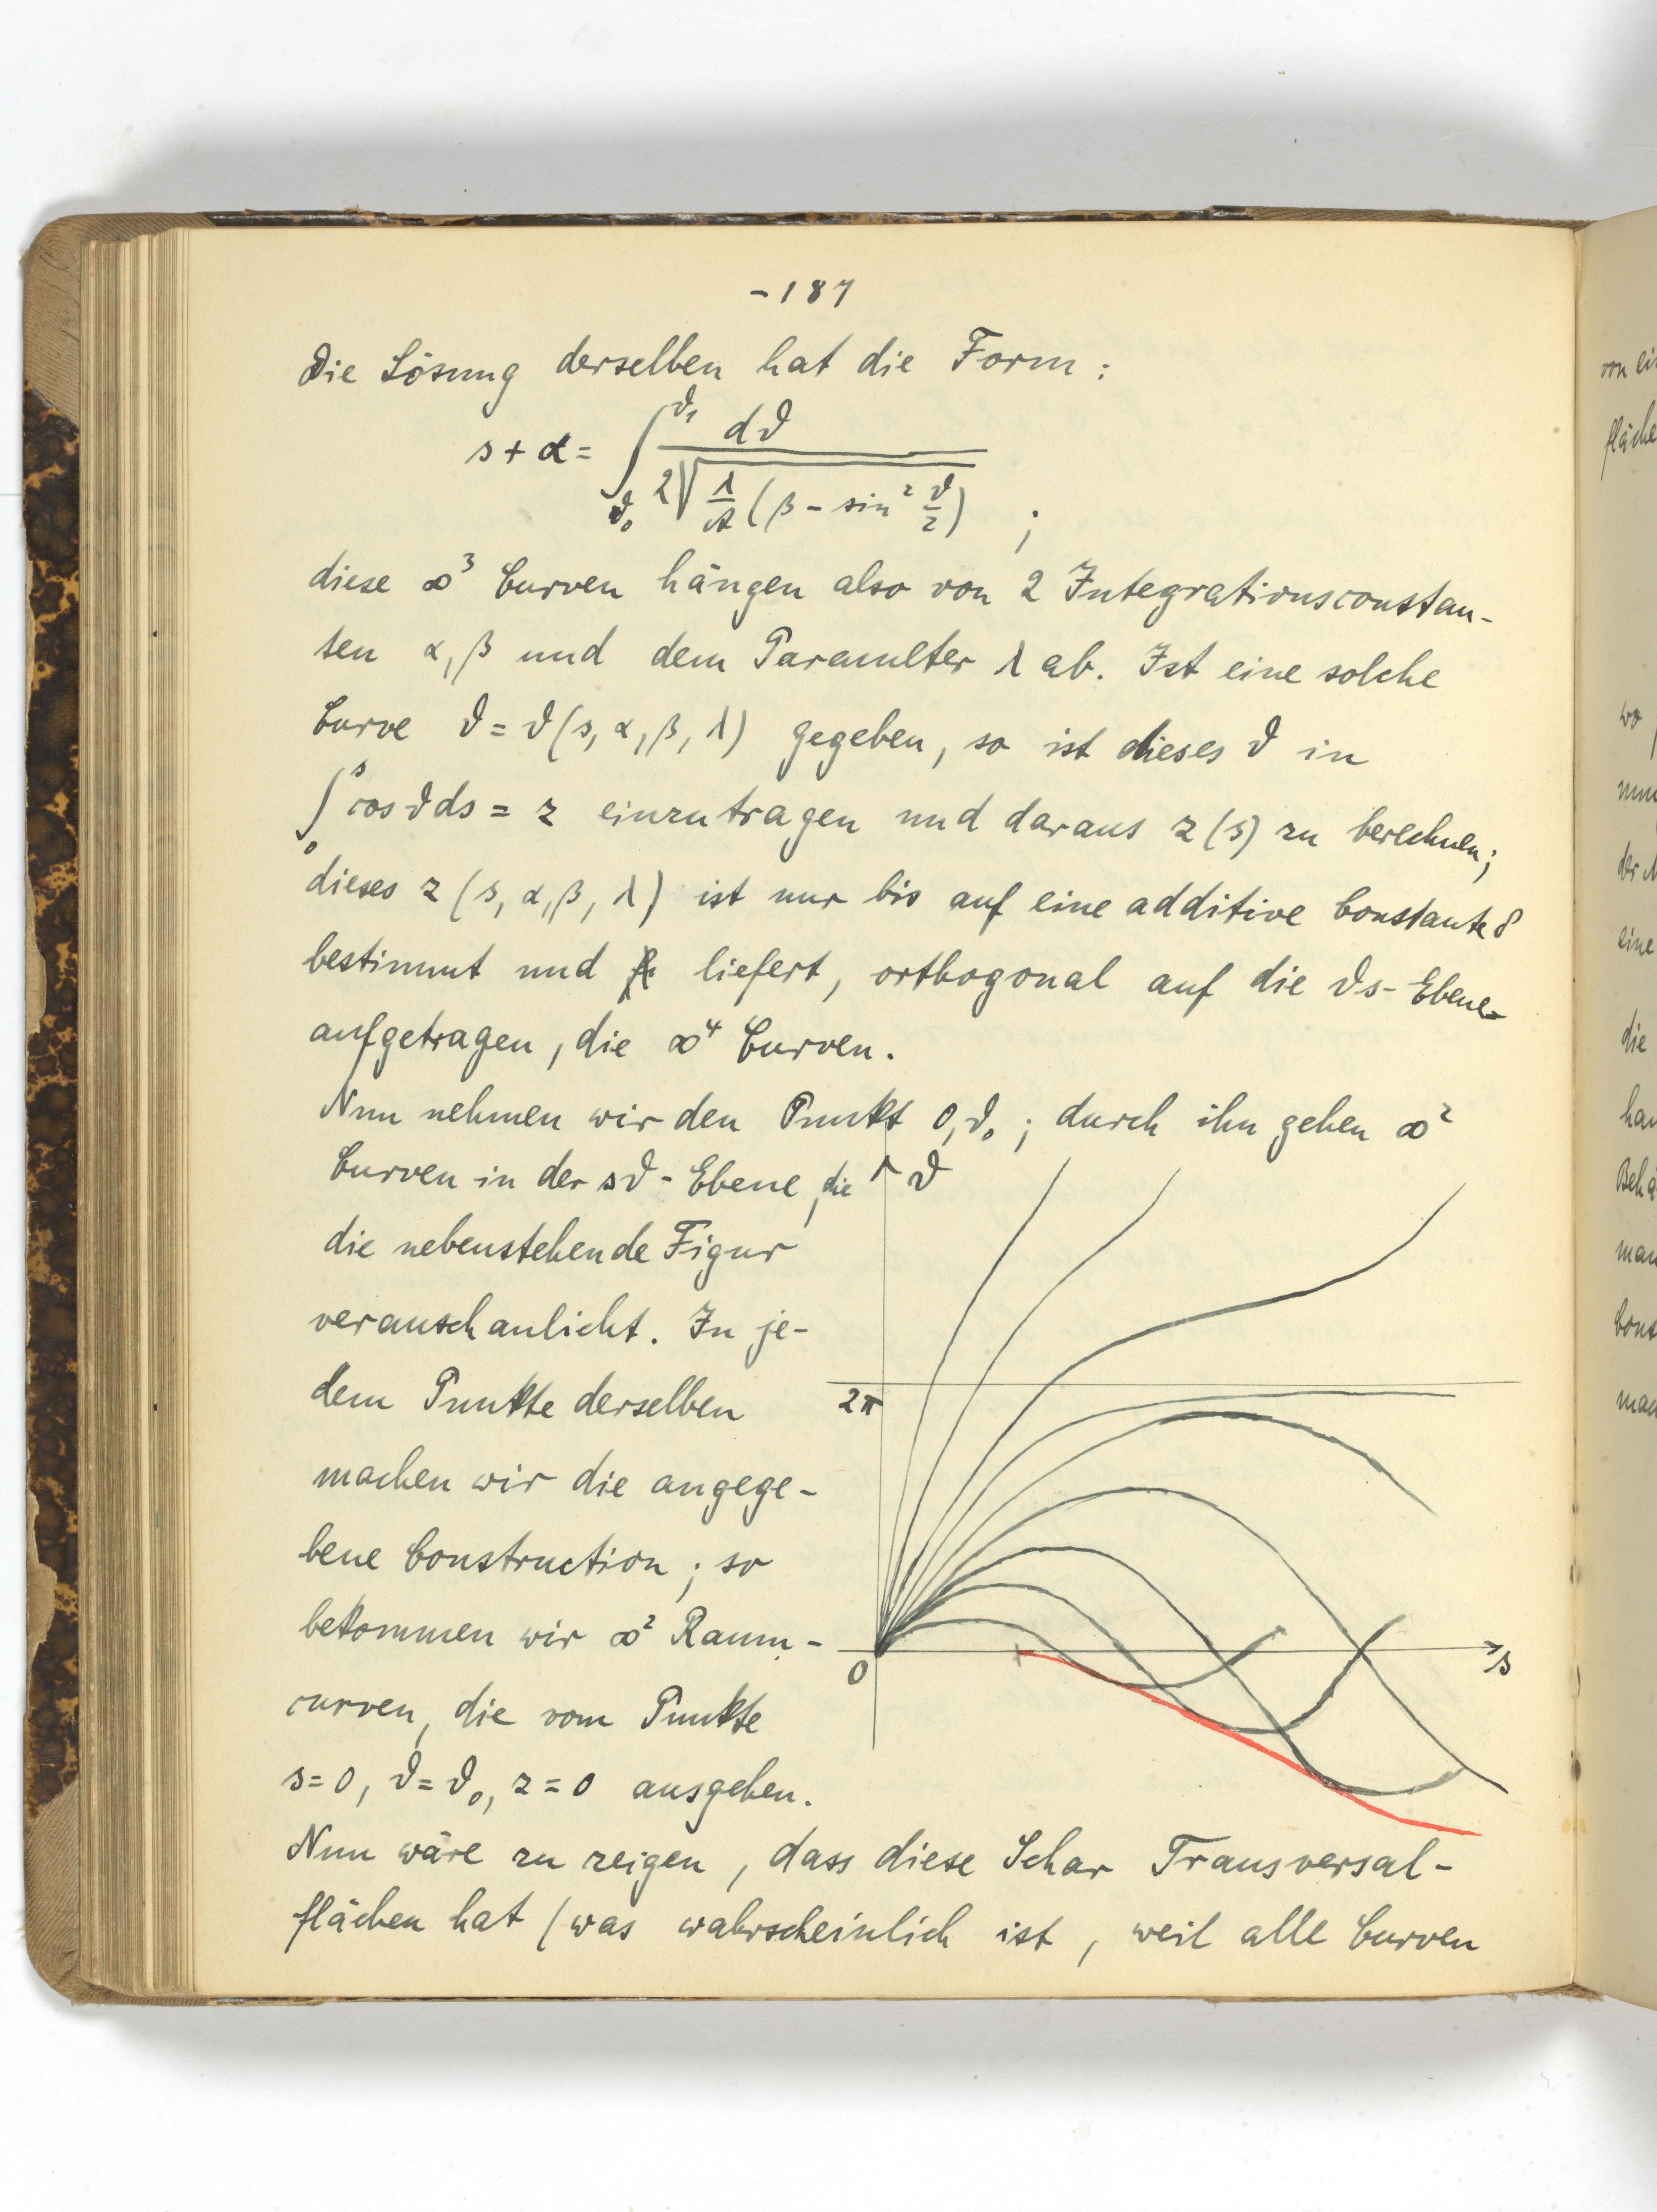 -187
Die Lösung derselben hat die Form:
s + α = ∫_{ϑ₀}^{ϑ₁} dϑ / 2√(λ/A (β - sin² ϑ/2)) ;
diese ∞³ Curven hängen also von 2 Integrationsconstan-
ten α, β und dem Parameter λ ab. Ist eine solche
Curve ϑ = ϑ(s, α, β, λ) gegeben, so ist dieses ϑ in
∫₀ˢ cos ϑ ds = z einzutragen und daraus z(s) zu berechnen;
dieses z(s, α, β, λ) ist nur bis auf eine additive Constante δ
bestimmt und liefert, orthogonal auf die ϑs-Ebene
aufgetragen, die ∞⁴ Curven.
Nun nehmen wir den Punkt 0, ϑ₀; durch ihn gehen ∞²
Curven in der sϑ-Ebene, die
die nebenstehende Figur
veranschaulicht. In je-
dem Punkte derselben
machen wir die angege-
bene Construction; so
bekommen wir ∞² Raum-
curven, die vom Punkte
s = 0, ϑ = ϑ₀, z = 0 ausgehen.
ϑ
2π
0
s
Nun wäre zu zeigen, dass diese Schar Transversal-
flächen hat (was wahrscheinlich ist, weil alle Curven
von ei
fläche
wo
nun
eine
die